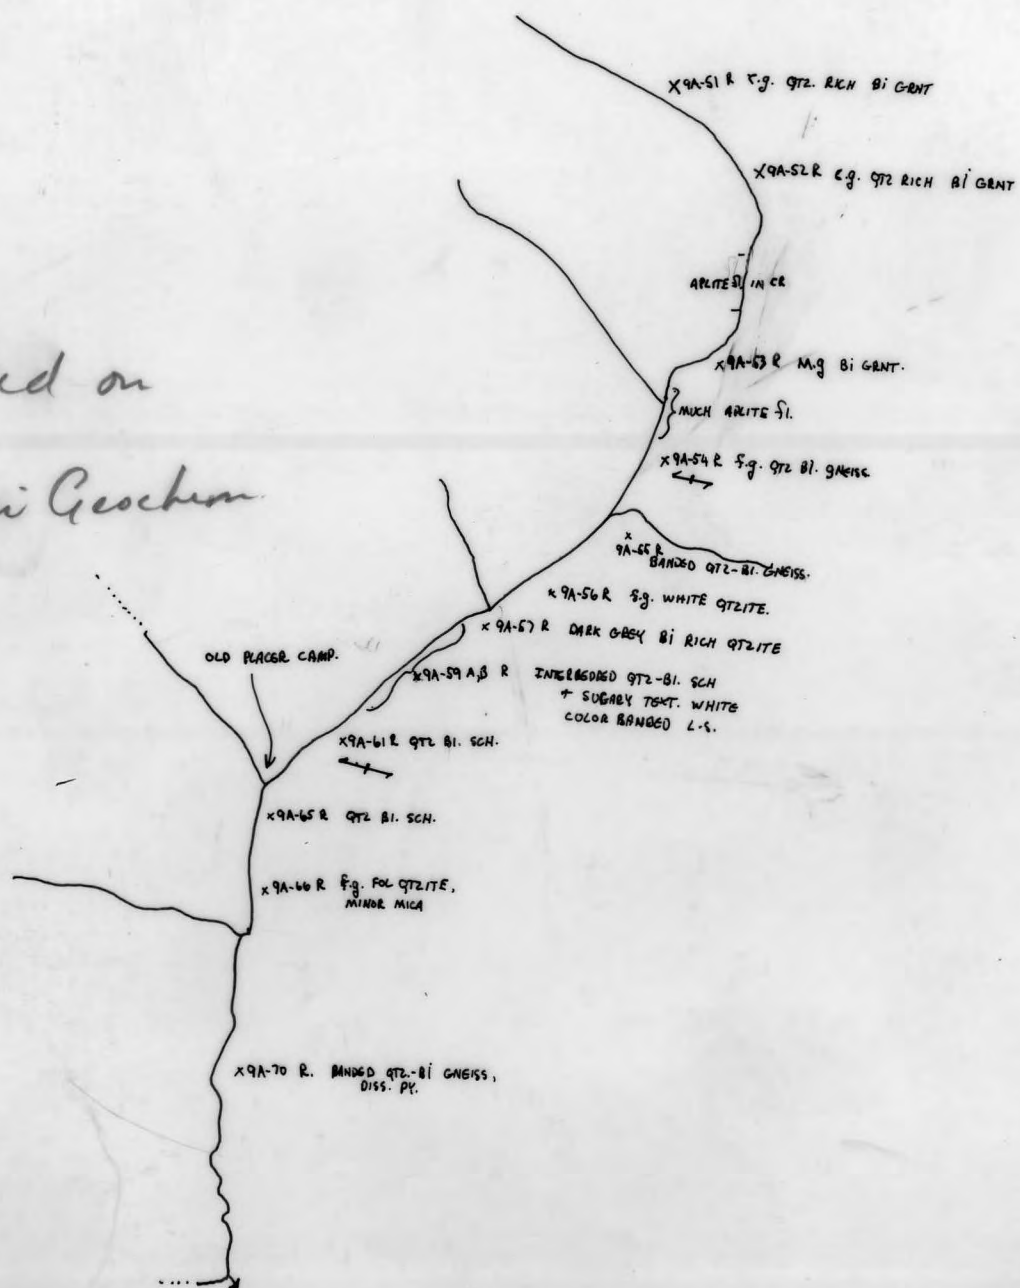 X 9A-51 R c.g. QTZ. RICH Bi GRNT
X 9A-52 R c.g. QTZ RICH Bi GRNT
APLITE fl. IN CR
X 9A-53 R M.g Bi GRNT.
MUCH APLITE fl.
on
X 9A-54 R f.g. QTZ BI. gNEISS
Geochem.
X
9A-55 R
BANDED QTZ-BI. GNEISS.
X 9A-56 R f.g. WHITE QTZITE.
X 9A-57 R DARK GREY Bi RICH QTZITE
OLD PLACER CAMP.
X 9A-59 A,B R INTERBEDDED QTZ-BI. SCH
+ SUGARY TEXT. WHITE
COLOR BANDED L.S.
X 9A-61 R QTZ BI. SCH.
X 9A-65 R QTZ BI. SCH.
X 9A-66 R f.g. FOL QTZITE,
MINOR MICA
X 9A-70 R. BANDED QTZ.-Bi GNEISS,
DISS. PY.